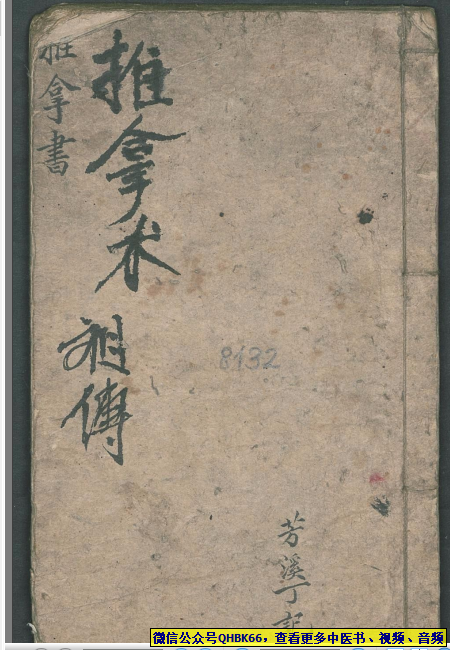 推拿書
推拿术
祖傳
8132
芳溪丁記
微信公众号QHBK66，查看更多中医书、视频、音频